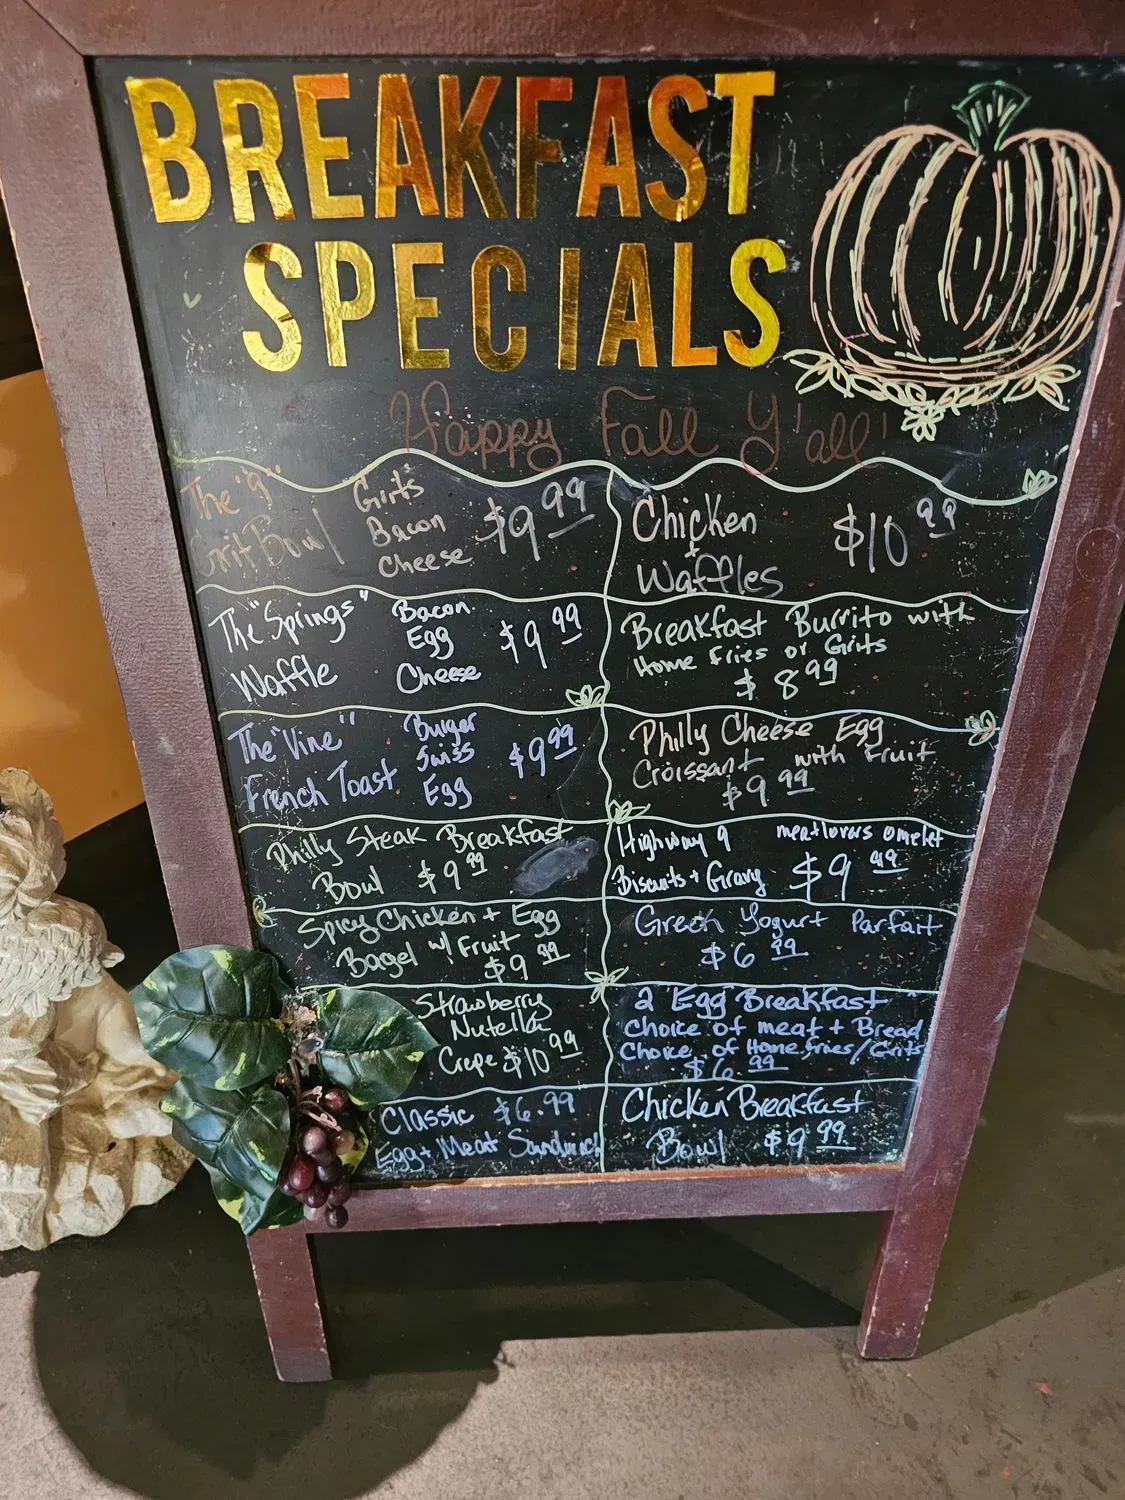 BREAKFAST
SPECIALS
Happy Fall Y'all!
The "9" Girts $9 99
Grit Bowl Bacon
Cheese
Chicken $10 99
+
Waffles
The "Springs" Bacon $9 99
Waffle Egg
Cheese
Breakfast Burrito with
Home fries or Grits
$8 99
The "Vine" Burger $9 99
French Toast Swiss
Egg
Philly Cheese Egg
Croissant with Fruit
$9 99
Philly Steak Breakfast
Bowl $9 99
Highway 9 meatlovers omelet
Biscuits + Gravy $9 99
Spicy Chicken + Egg
Bagel w/ Fruit
$9 99
Greek Yogurt Parfait
$6 99
Strawberry
Nutella
Crepe $10 99
2 Egg Breakfast
Choice of meat + Bread
Choice of Home fries/Grits
$6 99
Classic $6.99
Egg + Meat Sandwich
Chicken Breakfast
Bowl $9 99